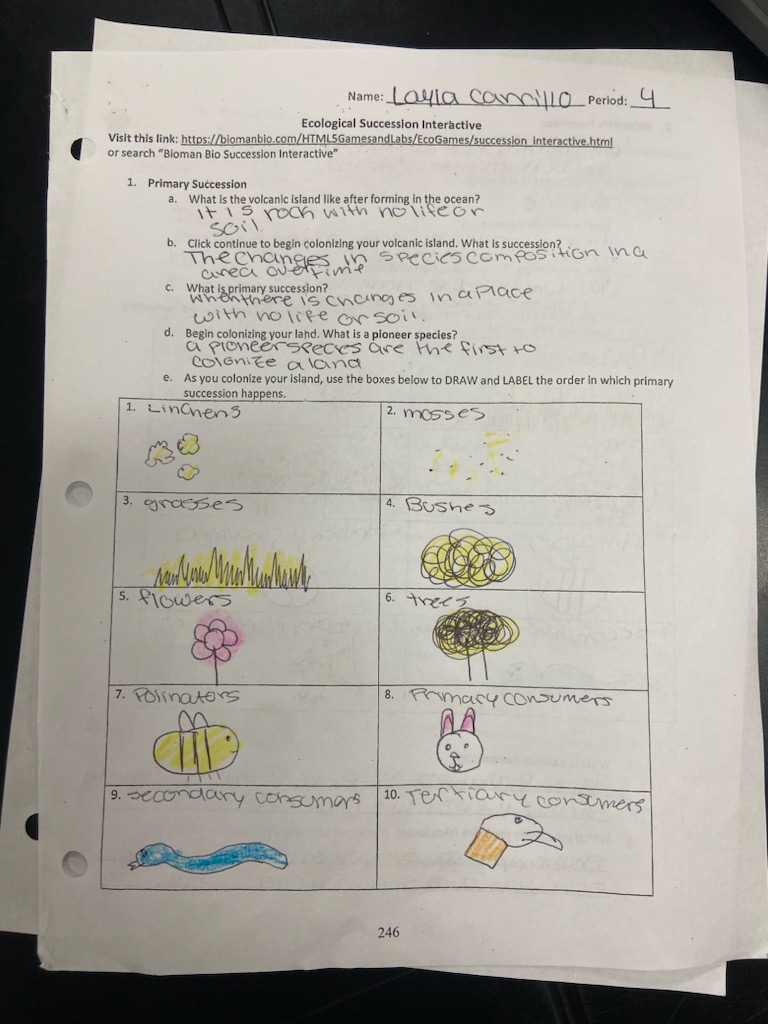 Name: Layla Carrillo Period: 4
Ecological Succession Interactive
Visit this link: https://biomanbio.com/HTML5GamesandLabs/EcoGames/succession_interactive.html
or search “Bioman Bio Succession Interactive”
1. Primary Succession
a. What is the volcanic island like after forming in the ocean?
It is rock with no life or
soil.
b. Click continue to begin colonizing your volcanic island. What is succession?
The changes in species composition in a
area over time
c. What is primary succession?
when there is changes in a place
with no life or soil.
d. Begin colonizing your land. What is a pioneer species?
a pioneer species are the first to
colonize a land
e. As you colonize your island, use the boxes below to DRAW and LABEL the order in which primary
succession happens.
1. Linchens
2. mosses
3. grasses
4. Bushes
5. flowers
6. trees
7. Polinators
8. Primary consumers
9. secondary consumars
10. Tertiary consumers
246